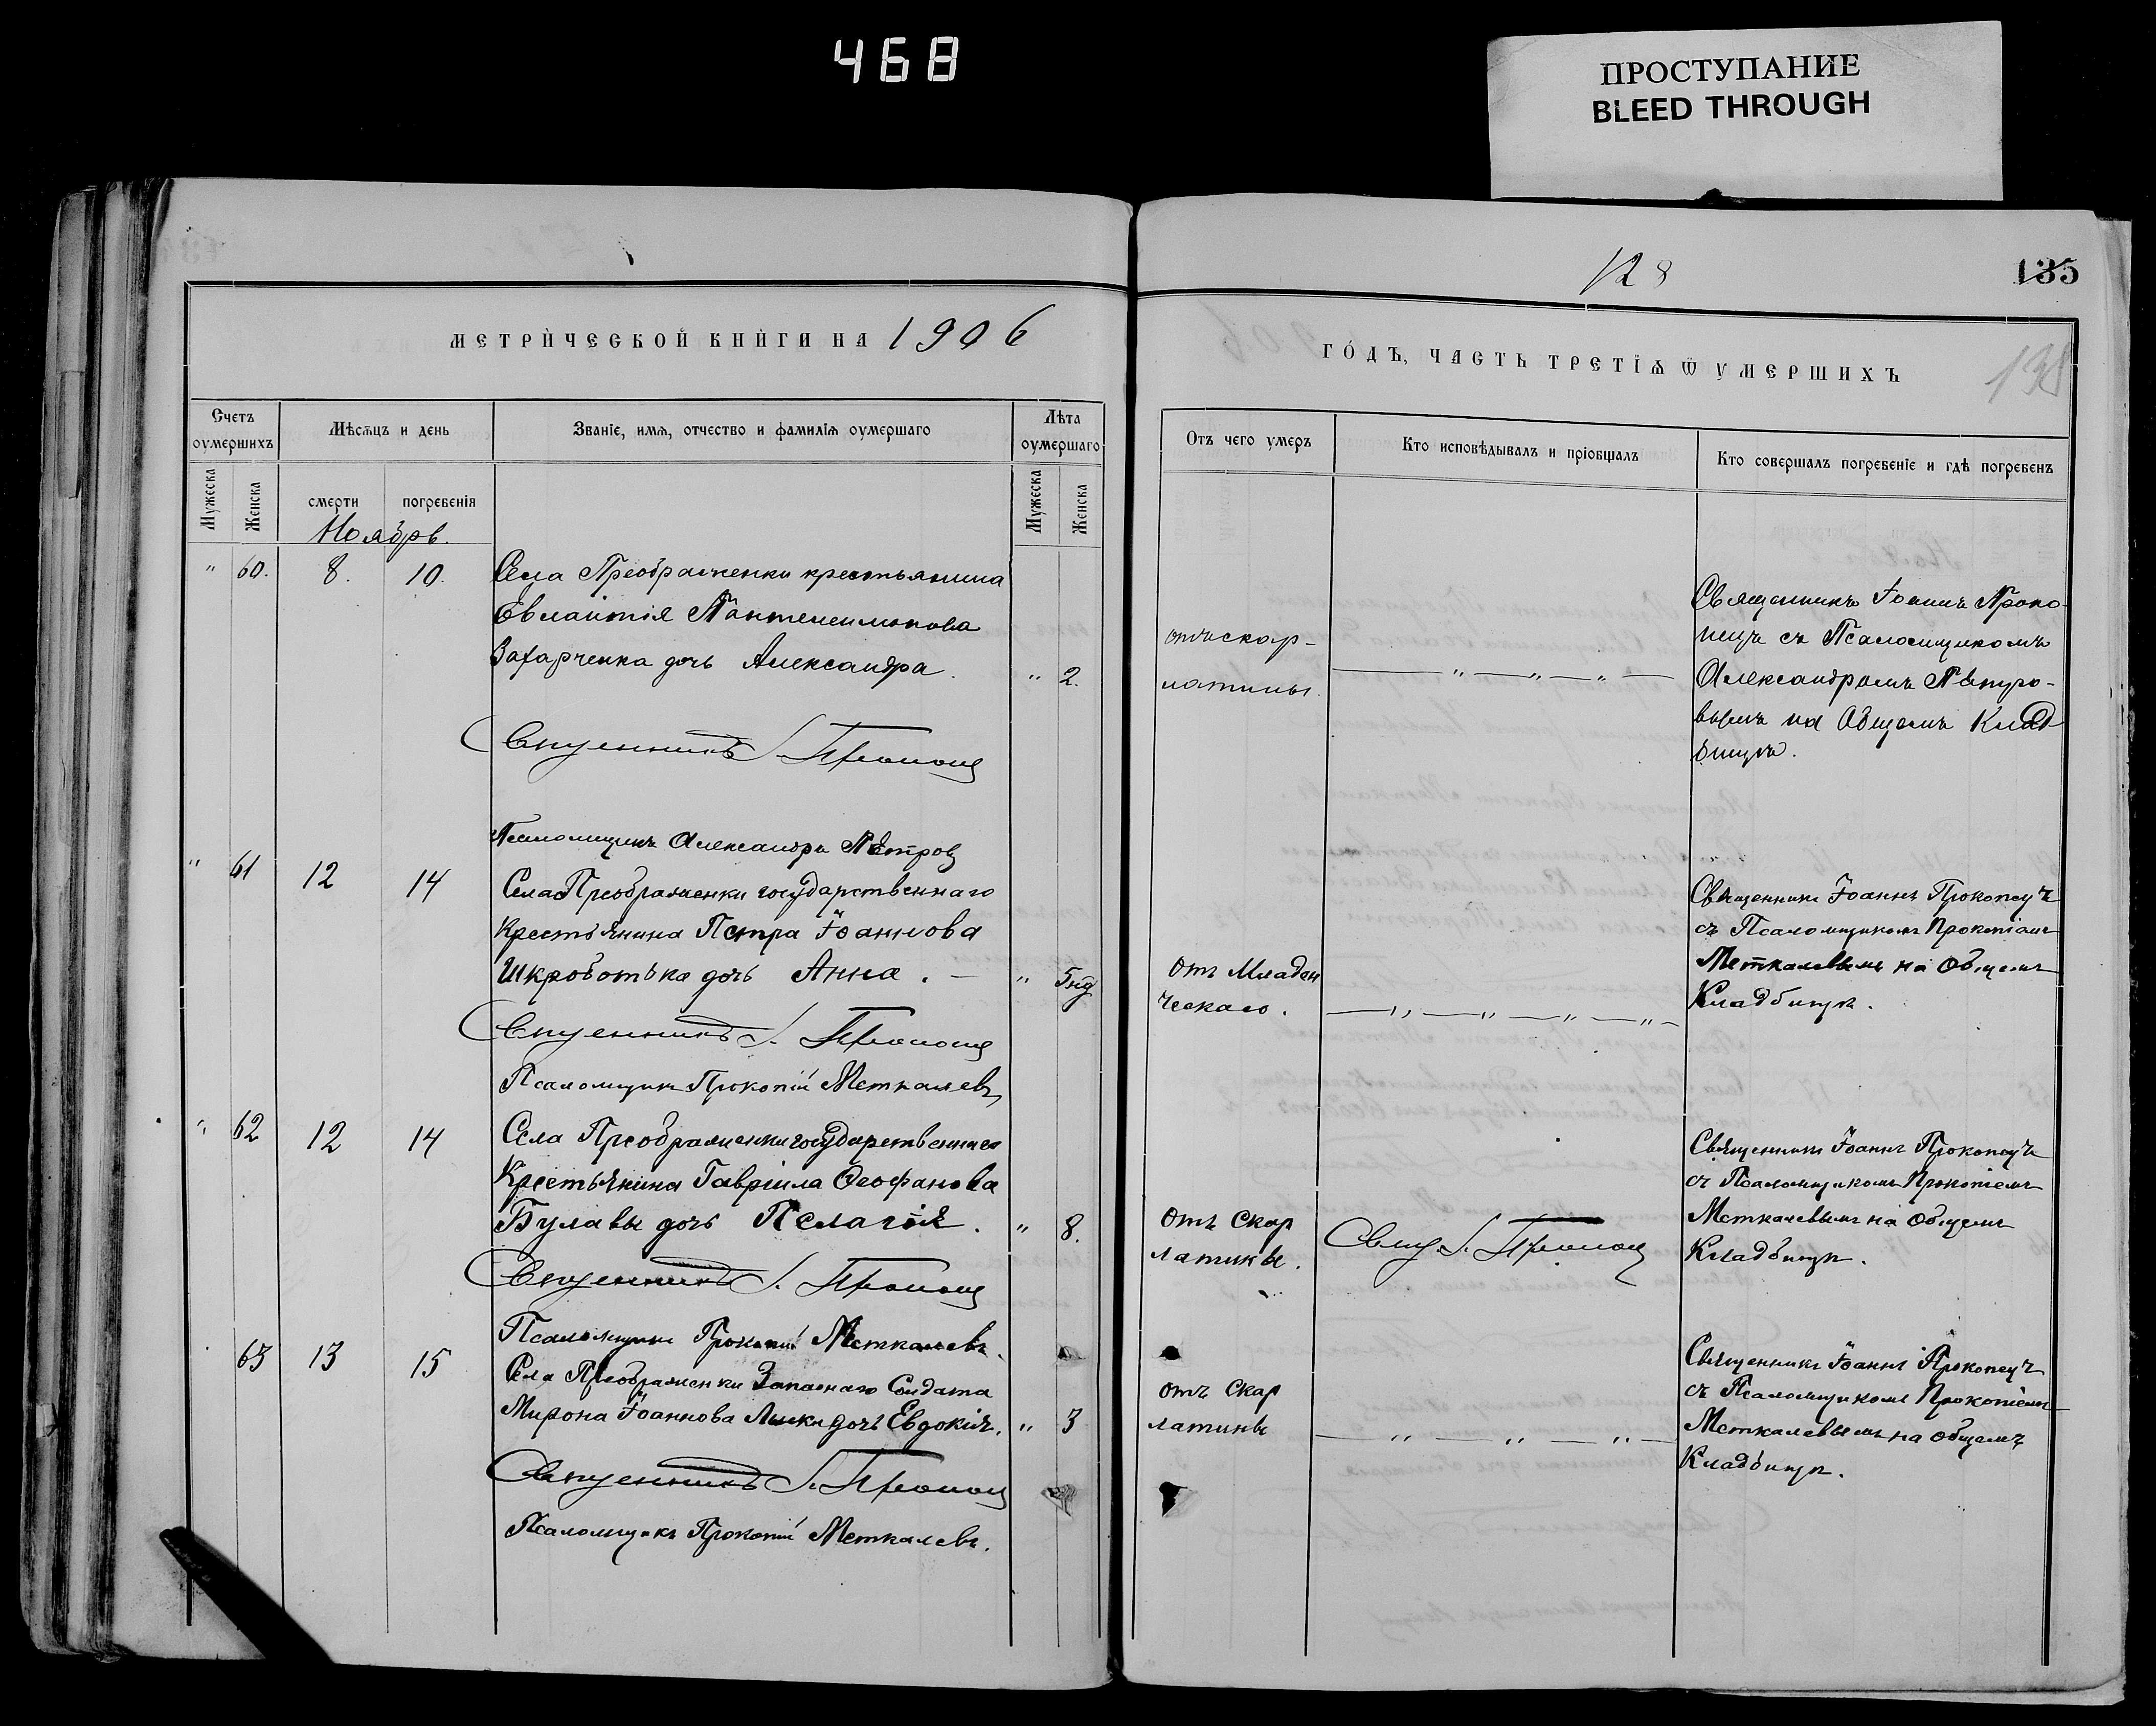 468
ПРОСТУПАНИЕ
BLEED THROUGH
128
135
138
МЕТРИЧЕСКОЙ КНИГИ НА 1906
ГОДЪ, ЧАСТЬ ТРЕТІѦ Ѿ УМЕРШИХЪ
Счетъ оумершихъ
Мѣсѧцъ и день
Званіе, имѧ, отчество и фамиліѧ оумершаго
Лѣта оумершаго
Отъ чего умеръ
Кто исповѣдывалъ и пріобщалъ
Кто совершалъ погребеніе и гдѣ погребенъ
Мужеска
Женска
смерти
погребенія
Мужеска
Женска
Ноябрь.
" 60. 8. 10.
Села Преображенки крестьянина
Евлампія Пантелеимонова
Захарченка дочь Александра.
" 2.
отъ скар-
латины.
— " — " — " —
Священникъ Іоаннъ Проко-
пецъ съ Псаломщикомъ
Александромъ Петро-
вымъ на Общемъ Клад-
бищѣ.
Священникъ І. Прокопец
Псаломщикъ Александръ Петровъ
" 61 12 14
Села Преображенки государственнаго
Крестьянина Петра Іоаннова
Шкроботька дочь Анна. —
" 5нд
Отъ Младен
ческаго.
— " — " — " — " —
Священникъ Іоаннъ Прокопецъ
съ Псаломщикомъ Прокопіемъ
Меткалевымъ на Общемъ
Кладбищѣ.
Священникъ І. Прокопец
Псаломщикъ Прокопій Меткалевъ
" 62 12 14
Села Преображенки государственнаго
Крестьянина Гавріила Ѳеофанова
Булавы дочь Пелагія.
" 8.
Отъ Скар
латины.
Свящ. І. Прокопец
Священникъ Іоаннъ Прокопецъ
съ Псаломщикомъ Прокопіемъ
Меткалевымъ на Общемъ
Кладбищѣ.
Священникъ І. Прокопец
Псаломщикъ Прокопій Меткалевъ.
63 13 15
Села Преображенки Запаснаго Солдата
Мирона Іоаннова дочь Евдокія.
" 3
отъ Скар
латины
— " — " — " —
Священникъ Іоаннъ Прокопецъ
съ Псаломщикомъ Прокопіемъ
Меткалевымъ на Общемъ
Кладбищѣ.
Священникъ І. Прокопец
Псаломщикъ Прокопій Меткалевъ.